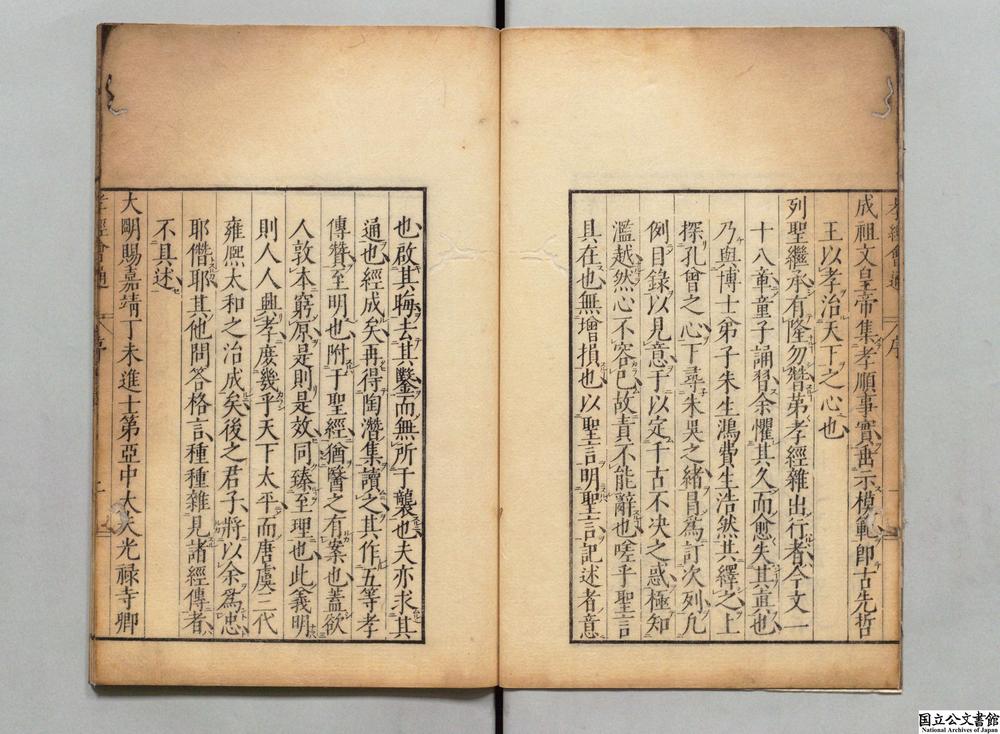 成祖文皇帝集孝順事實垂示模範即古先哲
王以孝治天下之心也
列聖繼承有隆勿替苐孝經雜出行者今文一
十八章童子誦習余懼其久而愈失其真也
乃與博士弟子朱生鴻費生浩然其繹之上
探孔曾之心下尋朱吳之緒冒為訂次列凡
例目錄以見意于以定千古不决之惑極知
濫越然心不容已故責不能辭也嗟乎聖言
具在也無增損也以聖言明聖言記述者意
也啟其晦去其鑿而無所于襲也夫亦求其
通也經成矣再得陶潛集讀之其作五等孝
傳贊至明也附于聖經猶醫之有案也蓋欲
人敦本窮原是則是效同臻至理也此義明
則人人興孝庶幾乎天下太平而唐虞三代
雍熈太和之治成矣後之君子將以余為忠
耶僭耶其他問答格言種種雜見諸經傳者
不具述
大明賜嘉靖丁未進士第亞中大夫光禄寺卿
孝經會通
序
国立公文書館
National Archives of Japan